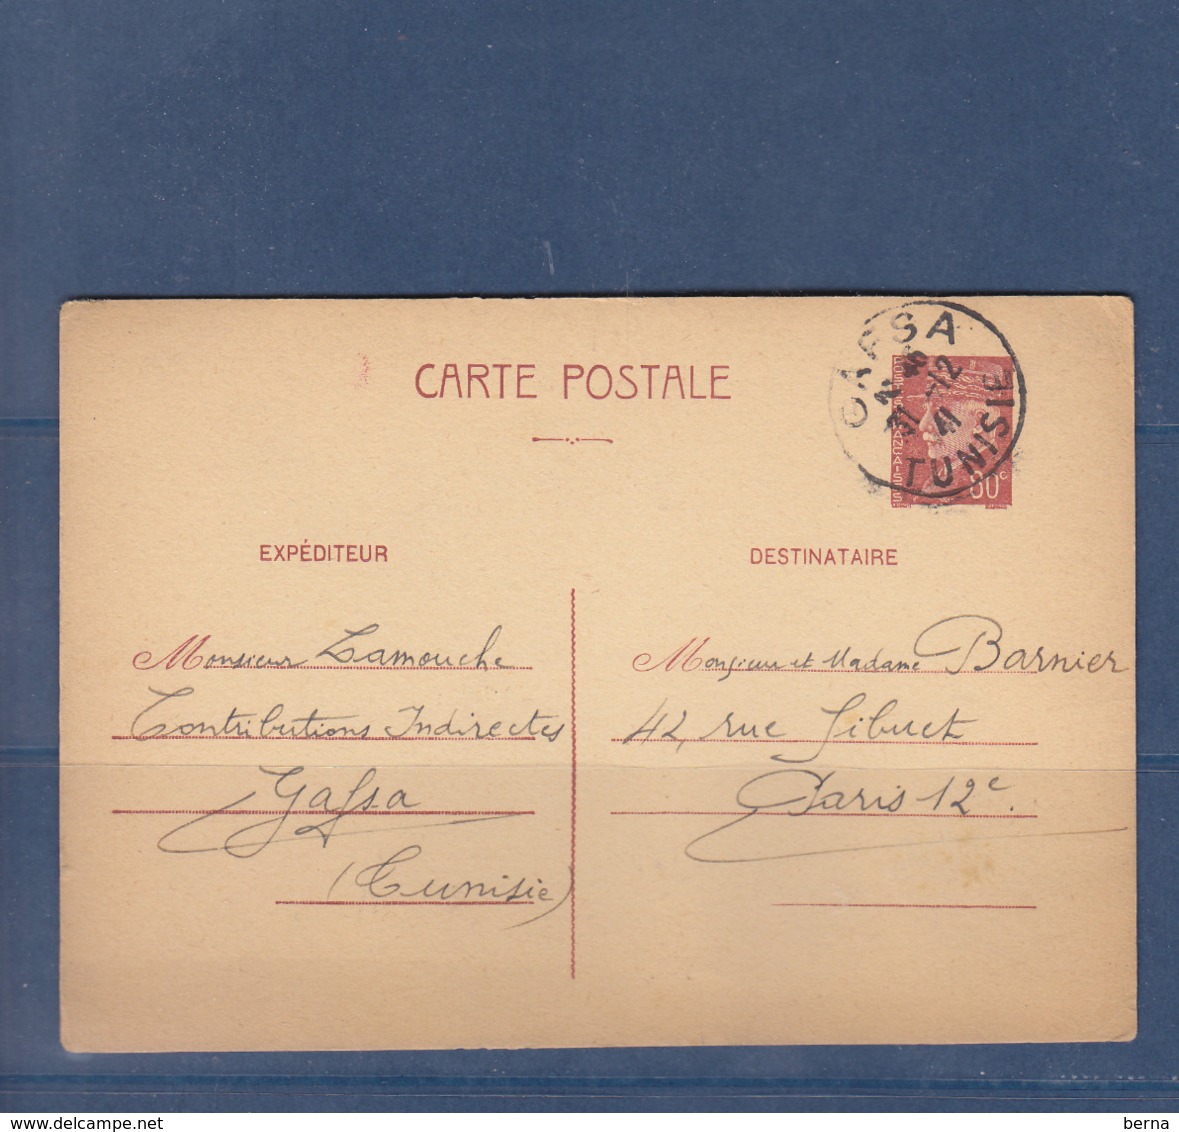 CARTE POSTALE
GAFSA
31 -12
41
TUNISIE
80c
EXPÉDITEUR
Monsieur Lamouche
Contributions Indirectes
Gafsa
(Tunisie)
DESTINATAIRE
Monsieur et Madame Barnier
42, rue Sibuet
Paris 12e.
www.delcampe.net
berna